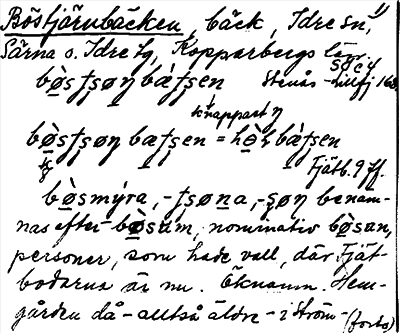 Böstjärnbäcken, bäck, Idre sn, 1)
Särna o. Idre tg, Kopparbergs län.
bo̲sʈʂo̲ŋ bæ̀ʈʂen SOC 4
Stenås-lillfj 168
knappart ŋ
bo̲sʈʂo̲ŋ bæʈʂen = bàʈʂen
Fjätb. 9 ff.
bo̲smýra, -ʈʂo̲na, -ʂo̲ŋ benäm-
nas efter bo̲sum, nominativ bo̲san,
personer, som hade vall, där Fjät-
bodarna är nu. Öknamn. Hem-
gården då - alltså äldre - i Ström-
(forts)